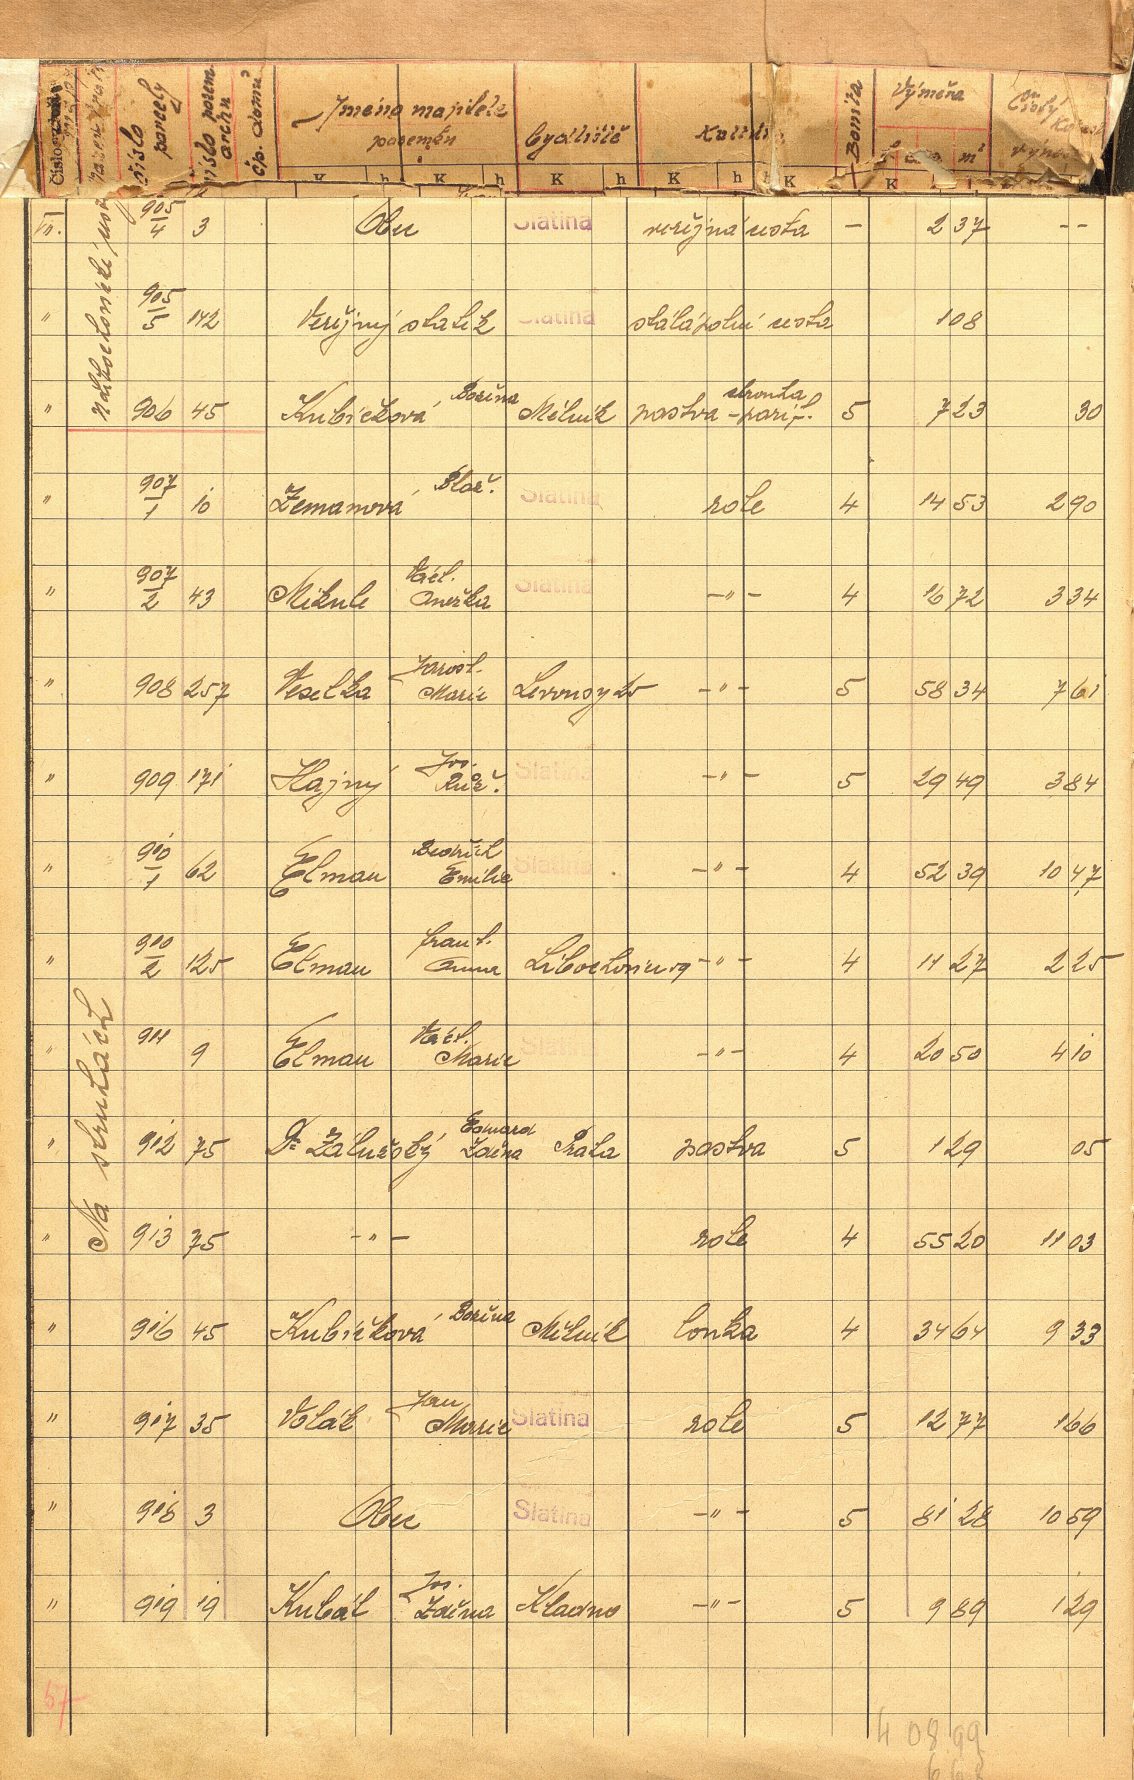 číslo parcely
číslo pozem. archu
čp. domů
Jméno majitele pozemku
bydliště
Kultura
Bonita
Výměra
Čistý výnos
K h K h K h K h K K
VII. 905/4 3 Obec Slatina veřejná cesta — 2 37 --
" 905/5 142 Veřejný statek Slatina stálá polní cesta 108
" 906 45 Kubíčková Božena Mělník pastva - strouha 5 723 30
" 907/1 10 Zemanová Blaž. Slatina role 4 14 53 290
" 907/2 43 Mikule Václ. Anežka Slatina -"- 4 16 72 334
" 908 257 Veselka Jarosl. Marie -"- 5 58 34 761
" 909 171 Hajný Jos. Růž. Slatina -"- 5 29 49 384
" 910/1 62 Elman Bedřich Emilie Slatina -"- 4 52 39 10 47
" 910/2 125 Elman Frant. Anna -"- 4 11 27 225
" 911 9 Elman Václ. Marie Slatina -"- 4 20 50 410
" 912 75 Dr Zálužský Edward Zdena Praha pastva 5 129 05
" 913 75 -"- role 4 55 20 11 03
" 916 45 Kubíčková Božena Mělník louka 4 34 64 9 33
" 917 35 Volák Jan Marie Slatina role 5 12 77 166
" 918 3 Obec Slatina -"- 5 81 28 10 59
" 919 19 Kubát Jos. Zdena Kladno -"- 5 9 89 129
Na struhách
57
4 08 99